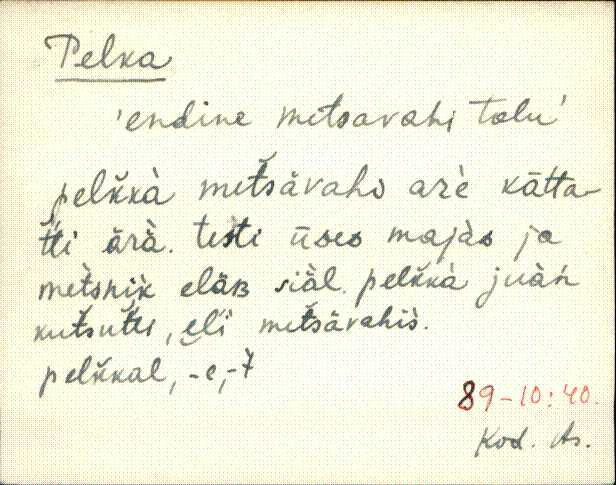 Pelka
'endine metsavahi talu'
pelk̆kà met̆sävaho arè kätta-
t̆ti ärà. testi ūses majàs ja
mètsnìk eläʙ siàl. pelk̆kà juàń
kut̆sut̆ti, eli met̆sävahìs.
pelk̆kal, -e, -7
89-10:40.
Kod. As.